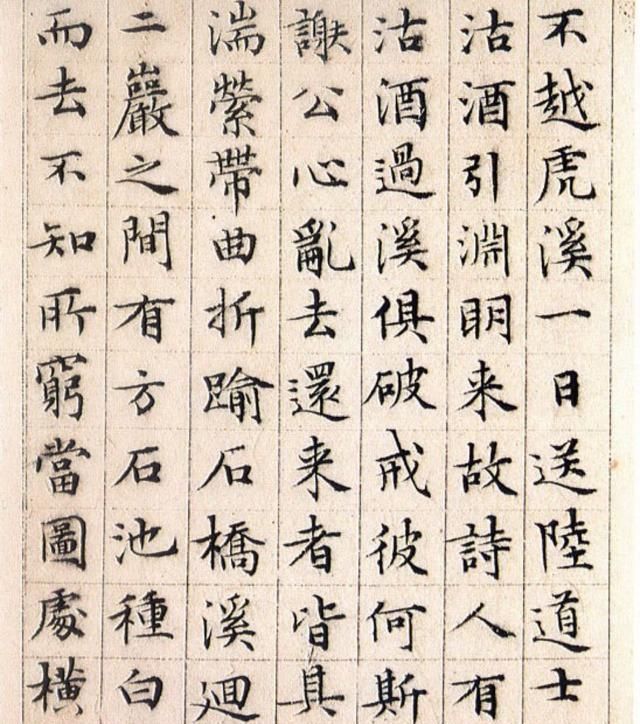 不越虎溪一日送陸道士
沽酒引淵明来故詩人有
沽酒過溪俱破戒彼何斯
謝公心亂去還来者皆具
湍縈帶曲折踰石橋溪迴
二巖之間有方石池種白
而去不知所窮當圖處横